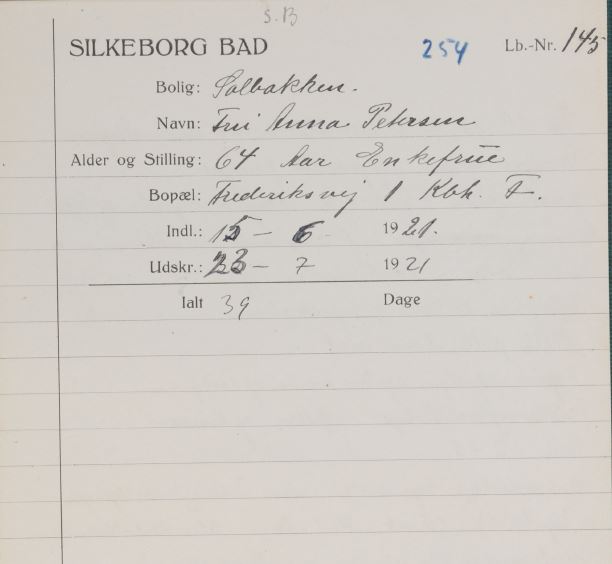 S.B
SILKEBORG BAD 254 Lb.-Nr. 145
Bolig: Solbakken.
Navn: Fru Anna Petersen
Alder og Stilling: 64 Aar Enkefrue
Bopæl: Frederiksvej 1 Kbh. F.
Indl.: 15 - 6 - 1921.
Udskr.: 23 - 7 1921
Ialt 39 Dage